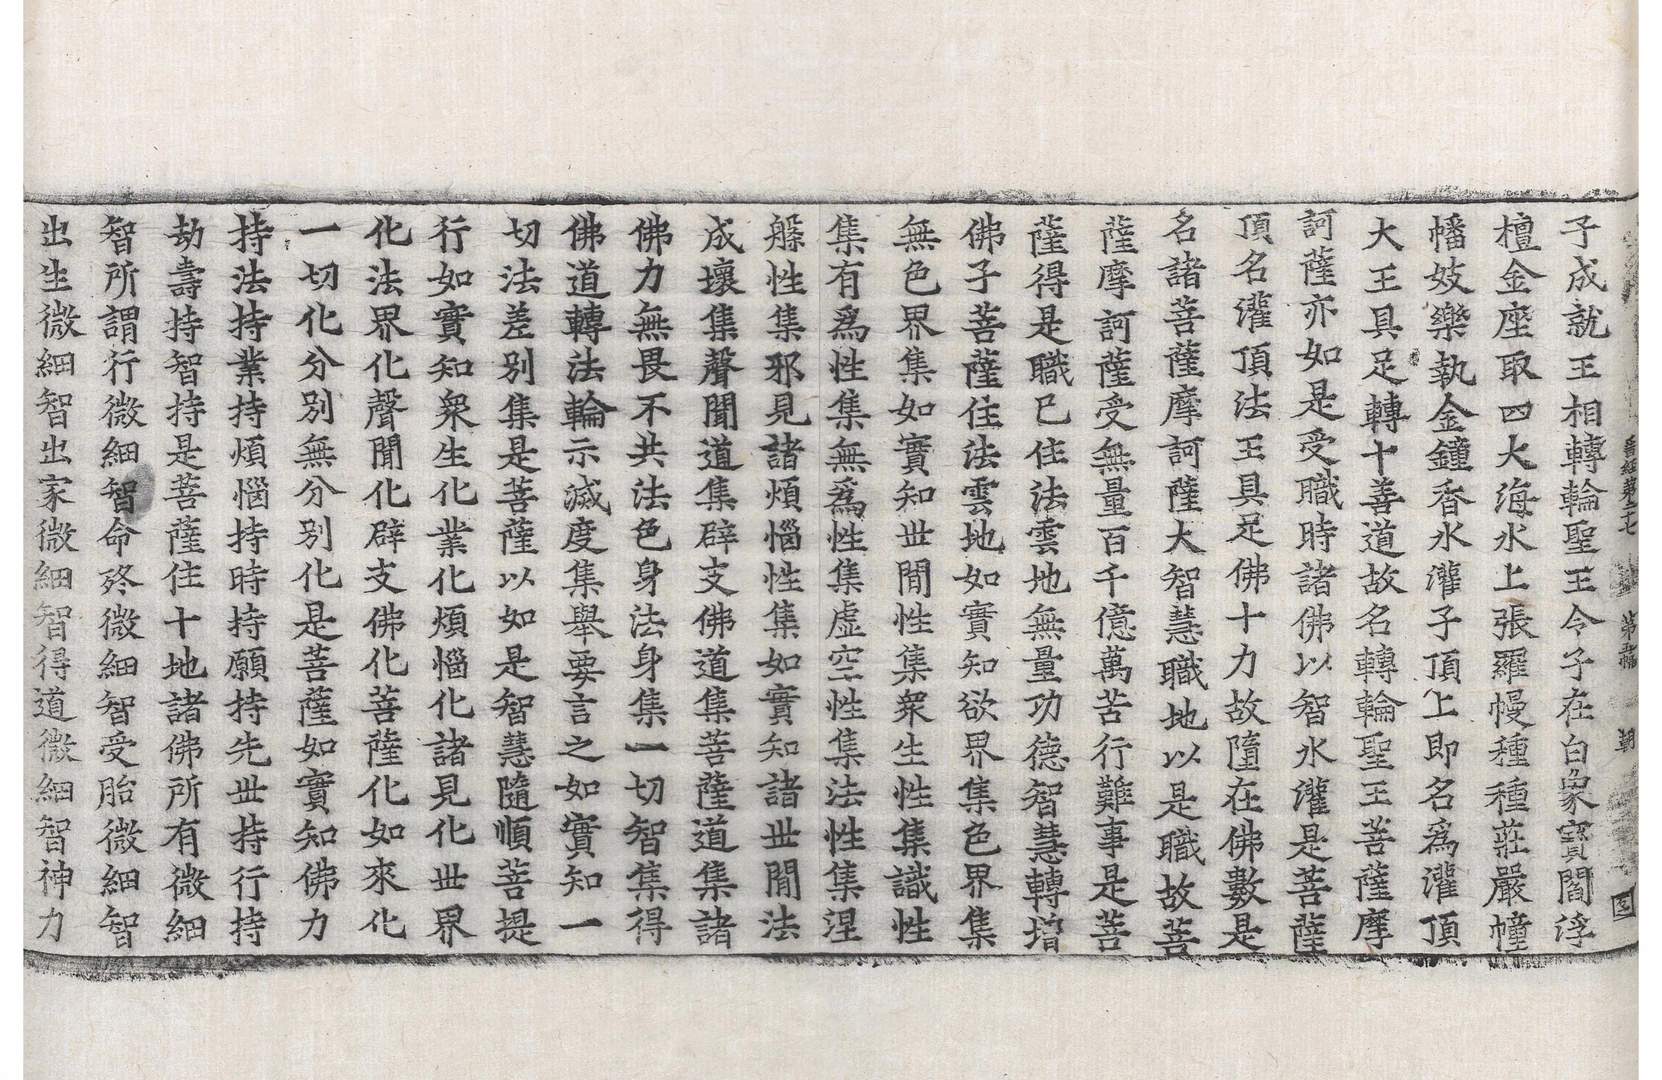 晋經第二七　第五幅　朝
子成就王相轉輪聖王令子在白象寶閻浮
檀金座取四大海水上張羅幔種種莊嚴幢
幡妓樂執金鐘香水灌子頂上即名爲灌頂
大王具足轉十善道故名轉輪聖王菩薩摩
訶薩亦如是受職時諸佛以智水灌是菩薩
頂名灌頂法王具足佛十力故墮在佛數是
名諸菩薩摩訶薩大智慧職地以是職故菩
薩摩訶薩受無量百千億萬苦行難事是菩
薩得是職已住法雲地無量功德智慧轉增
佛子菩薩住法雲地如實知欲界集色界集
無色界集如實知世閒性集衆生性集識性
集有爲性集無爲性集虛空性集法性集涅
槃性集邪見諸煩惱性集如實知諸世閒法
成壞集聲聞道集辟支佛道集菩薩道集諸
佛力無畏不共法色身法身集一切智集得
佛道轉法輪示滅度集舉要言之如實知一
切法差別集是菩薩以如是智慧隨順菩提
行如實知衆生化業化煩惱化諸見化世界
化法界化聲聞化辟支佛化菩薩化如來化
一切化分別無分別化是菩薩如實知佛力
持法持業持煩惱持時持願持先世持行持
劫壽持智持是菩薩住十地諸佛所有微細
智所謂行微細智命終微細智受胎微細智
出生微細智出家微細智得道微細智神力